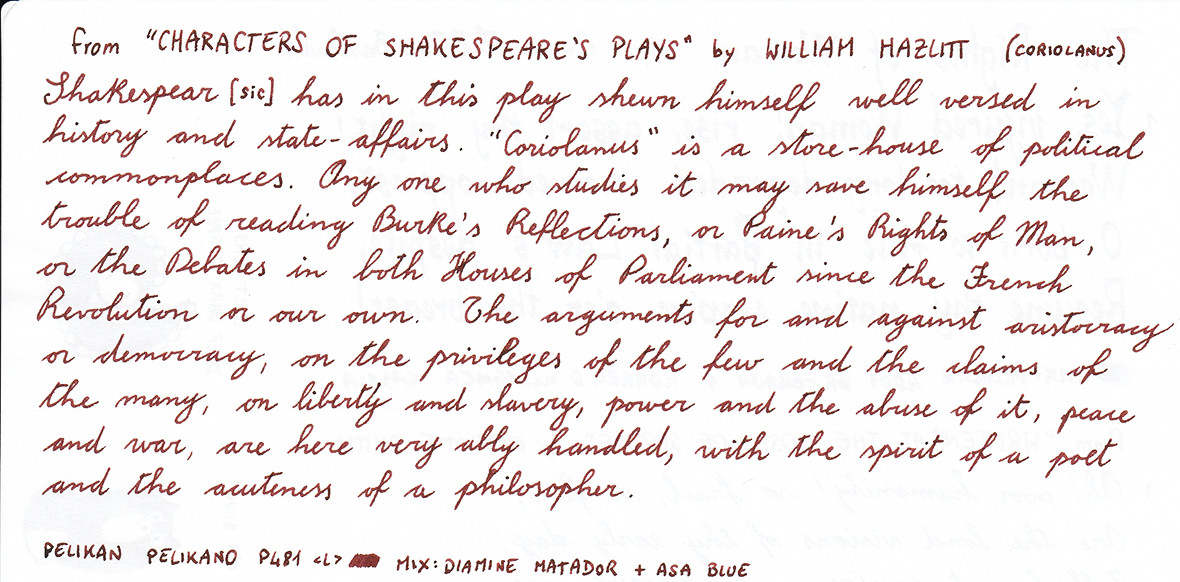 from "CHARACTERS OF SHAKESPEARE'S PLAYS" by WILLIAM HAZLITT (CORIOLANUS)
Shakespear [sic] has in this play shewn himself well versed in
history and state-affairs. "Coriolanus" is a store-house of political
commonplaces. Any one who studies it may save himself the
trouble of reading Burke's Reflections, or Paine's Rights of Man,
or the Debates in both Houses of Parliament since the French
Revolution or our own. The arguments for and against aristocracy
or democracy, on the privileges of the few and the claims of
the many, on liberty and slavery, power and the abuse of it, peace
and war, are here very ably handled, with the spirit of a poet
and the acuteness of a philosopher.
PELIKAN PELIKANO P481 <L> MIX: DIAMINE MATADOR + ASA BLUE